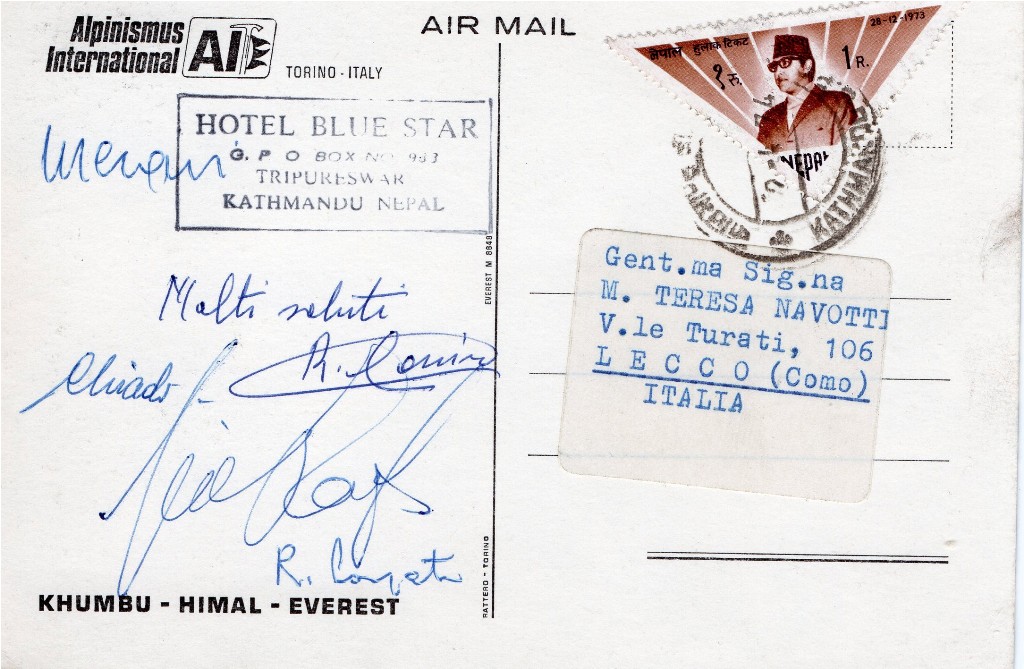 Alpinismus
International
AI
TORINO - ITALY
AIR MAIL
HOTEL BLUE STAR
G. P O BOX NO 983
TRIPURESWAR
KATHMANDU NEPAL
Molti saluti
KHUMBU - HIMAL - EVEREST
EVEREST M 8848
RATTERO - TORINO
नेपाल हुलाक टिकट
28-12-1973
१ रु.
1 R.
NEPAL
KATHMANDU
Gent.ma Sig.na
M. TERESA NAVOTTI
V.le Turati, 106
LECCO (Como)
ITALIA